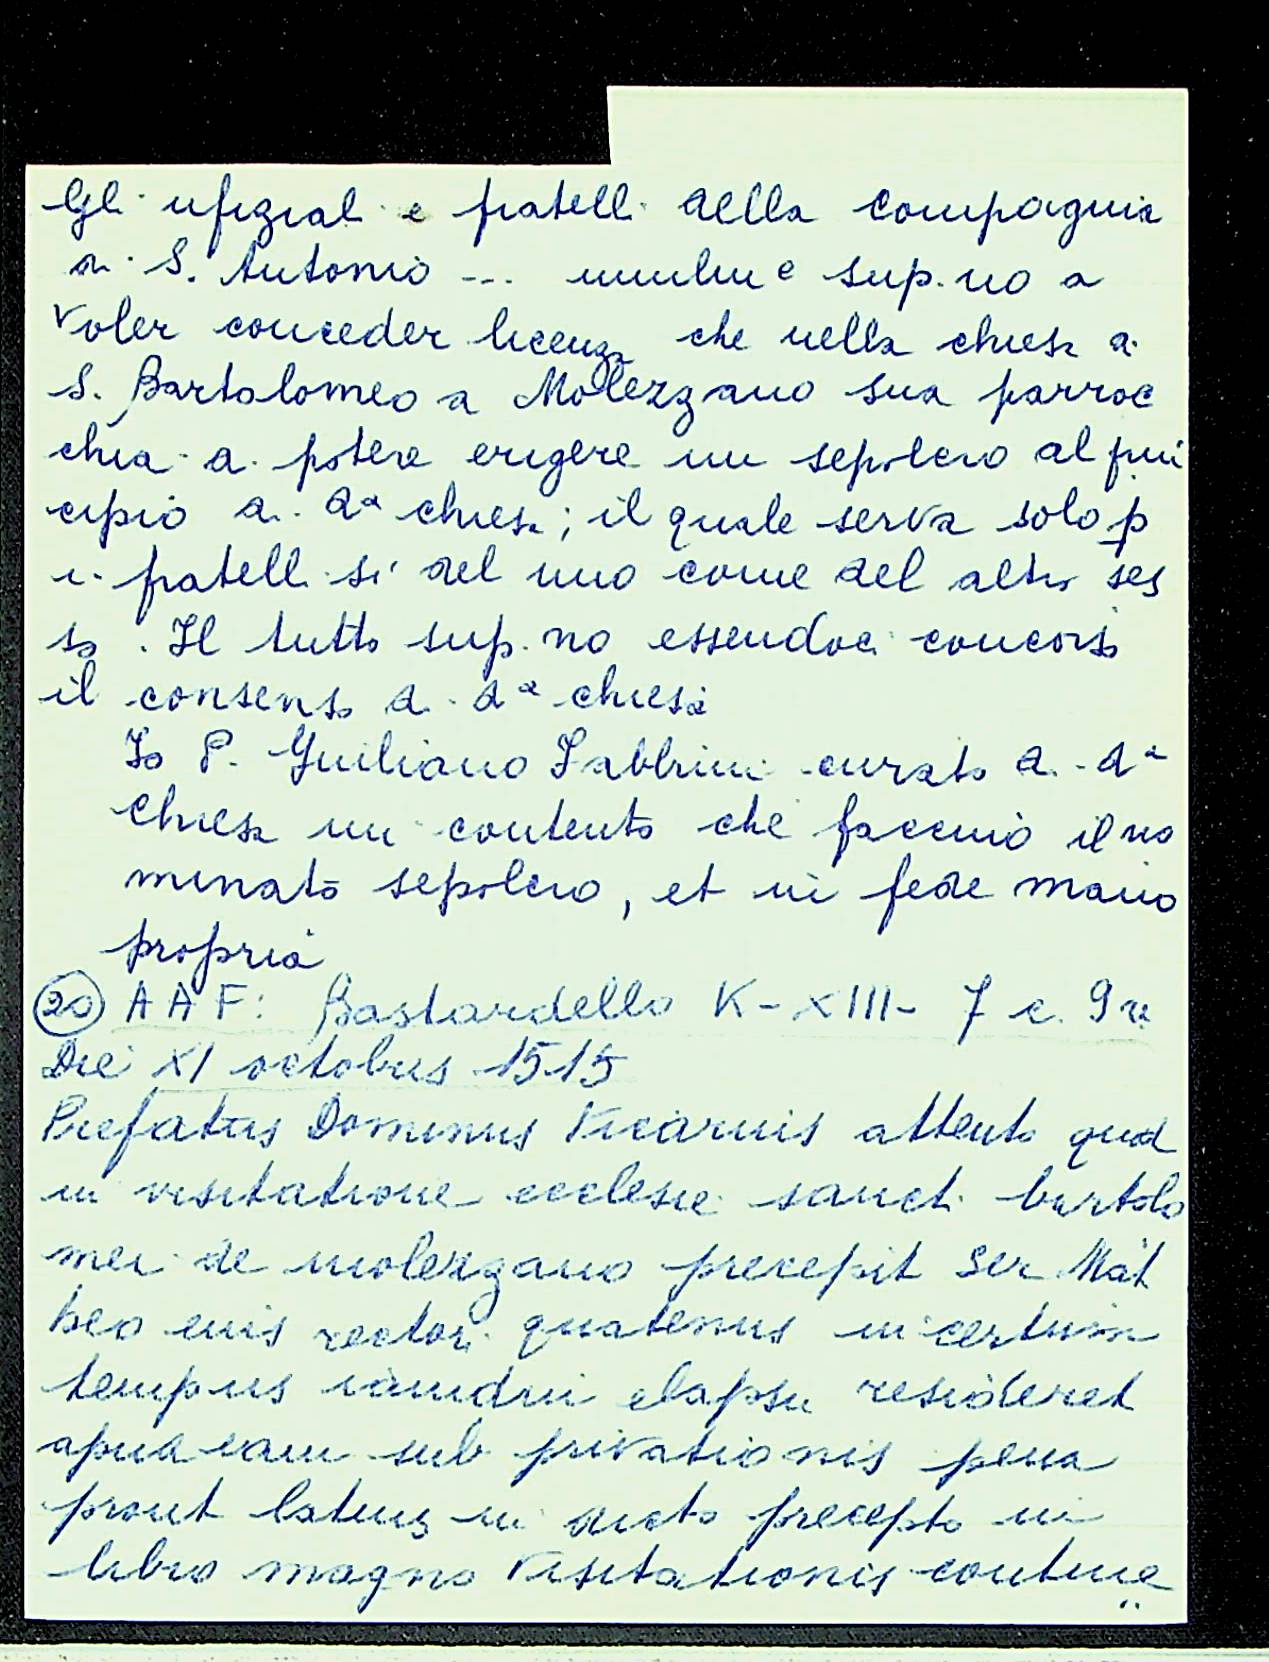 Gli ufizial e fratelli della compagnia
di S. Antonio --- umilme sup.no a
voler conceder licenza che nella chiesa di
S. Bartolomeo a Molezzano sua parroc
chia di potere erigere un sepolcro al prin
cipio di da chiesa; il quale serva solo p
i fratelli si del uno come del altro ses
so. Il tutto sup.no essendoci concorso
il consenso di da chiesa
Io P. Giuliano Fabbrini curato di da
chiesa mi contento che faccino il no
minato sepolcro, et in fede mano
propria
20 AAF: Bastardello K-XIII-7 c. 9v
Die XI octobris 1515
Prefatus Dominus Vicarius attento quod
in visitatione ecclesie sancti bartolo
mei de molezzano precepit Ser Mat
heo eius rectori quatenus in certum
tempus iamdiu elapsu resideret
apud eam sub privationis pena
prout latius in dicto precepto in
libro magno Visitationis contine